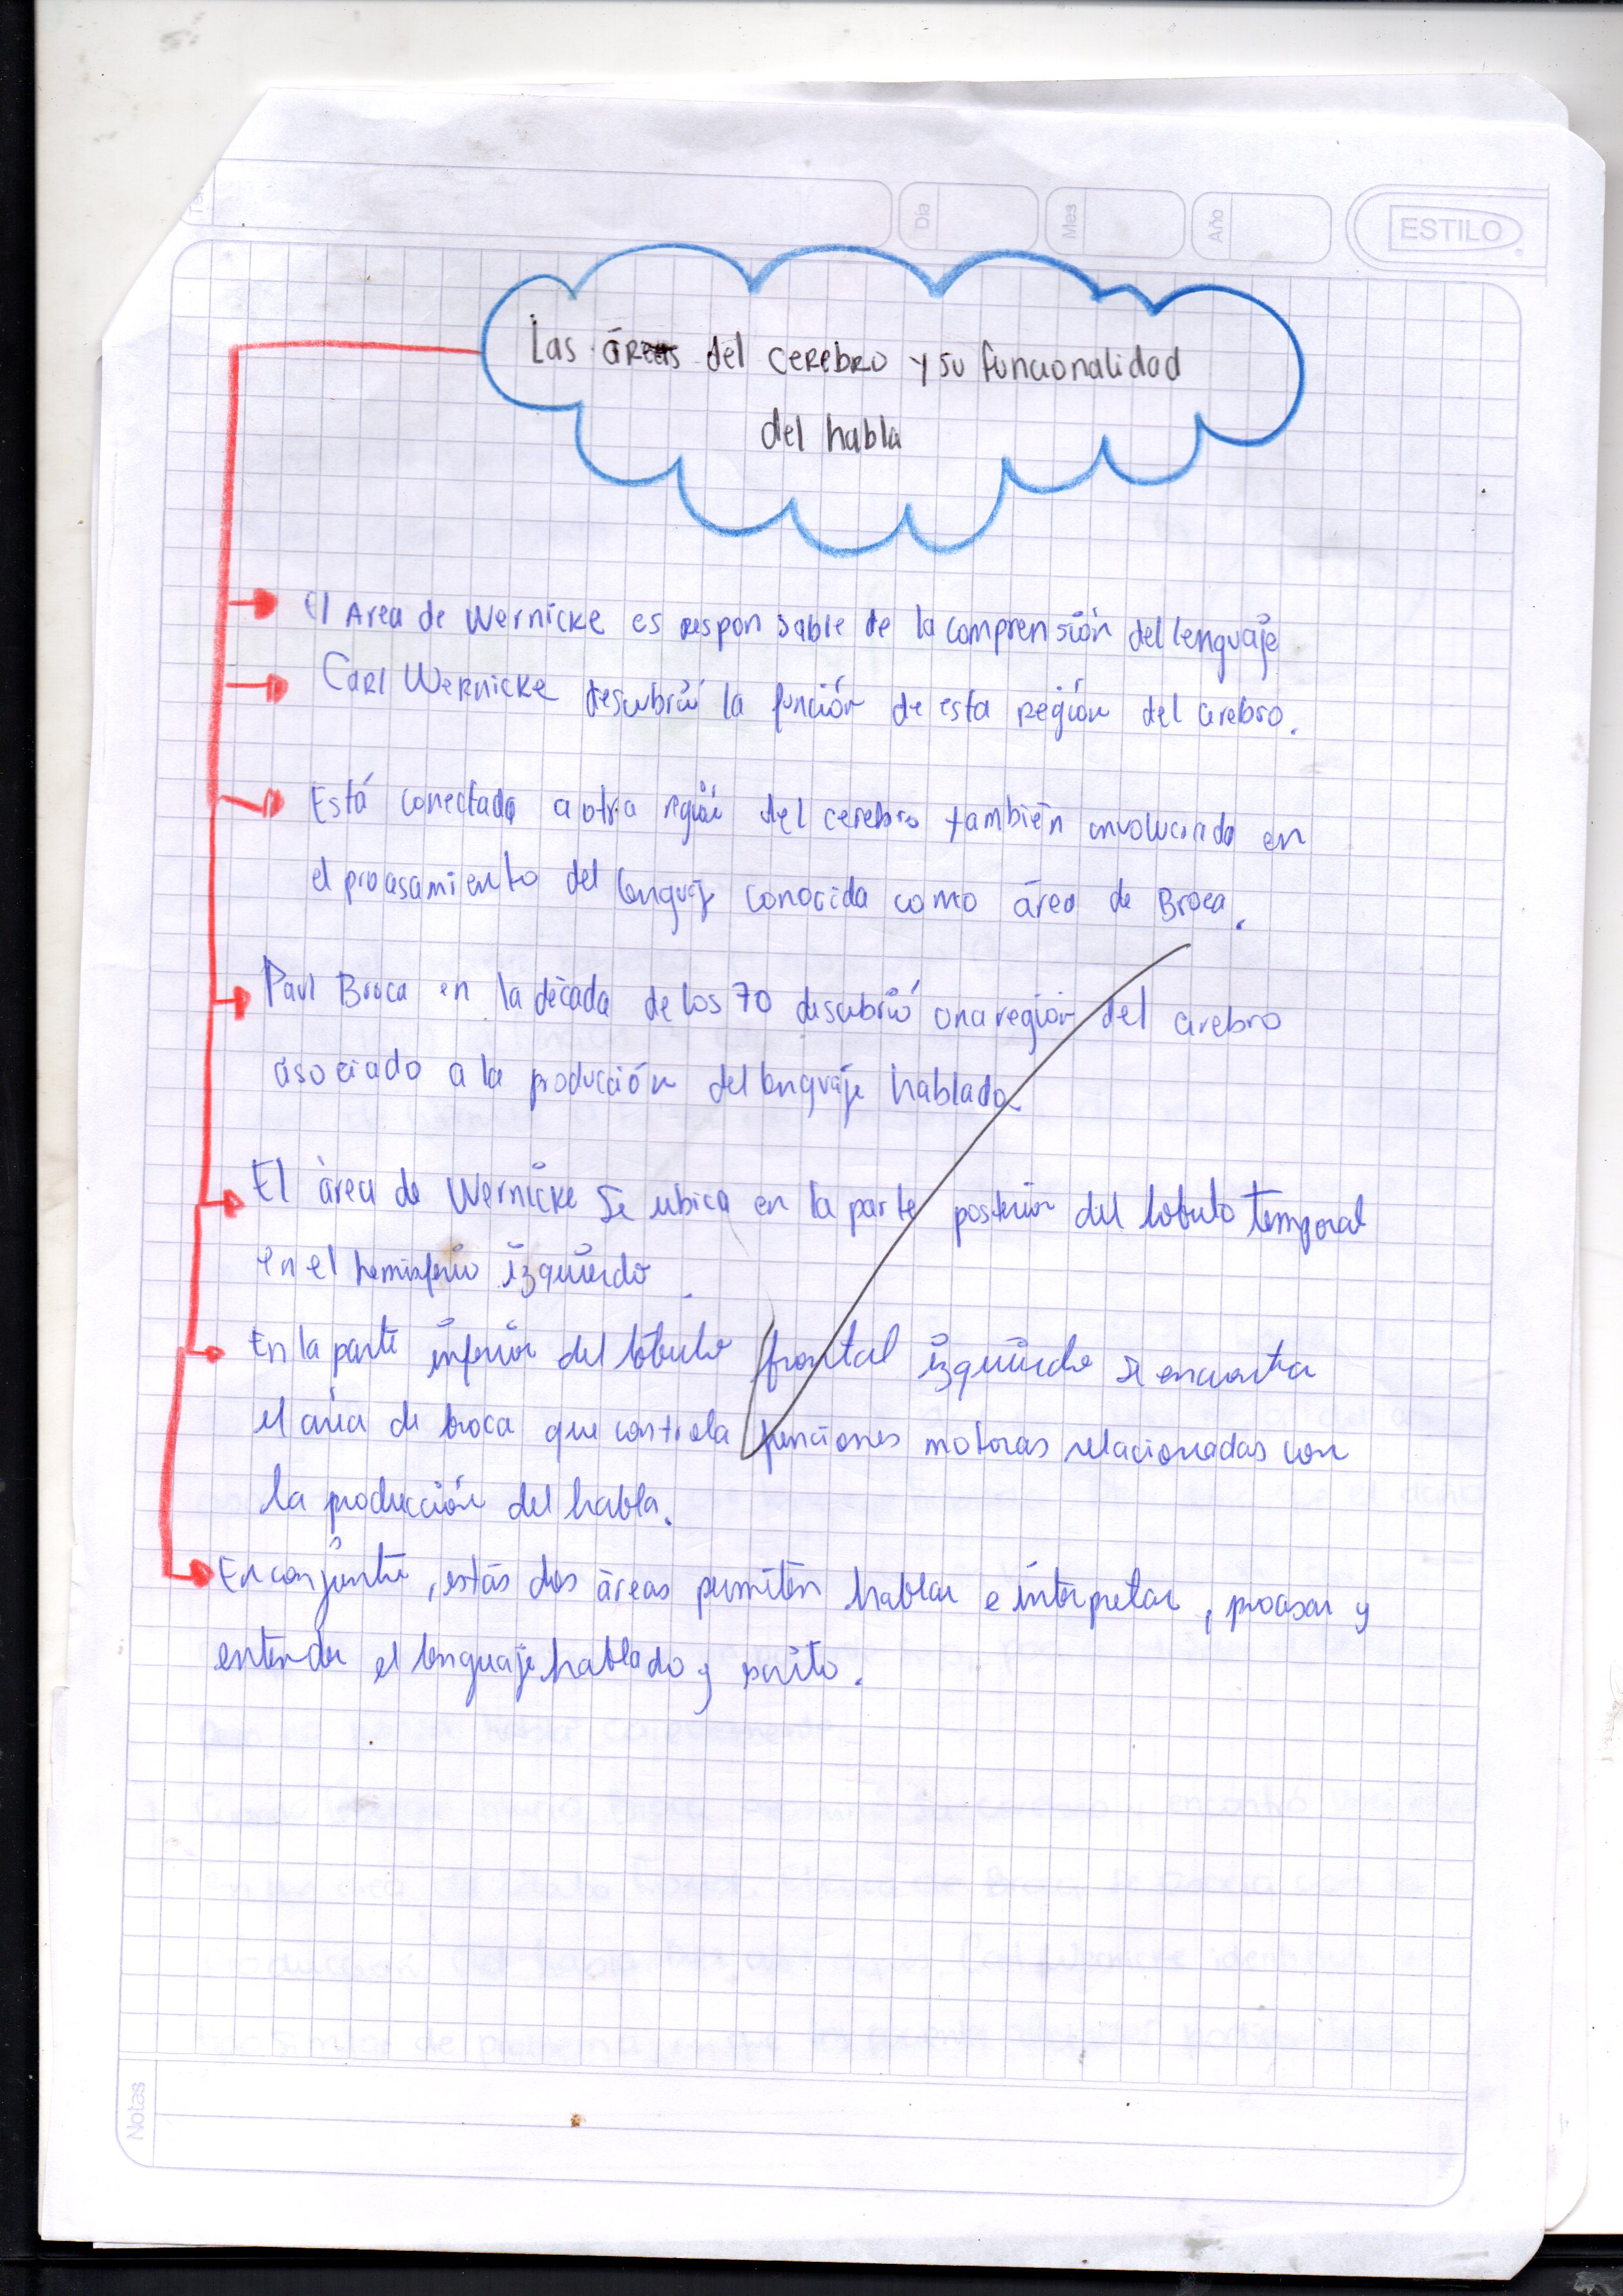 Tema
Día
Mes
Año
ESTILO
Las áreas del cerebro y su funcionalidad
del habla
El Area de Wernicke es responsable de la comprensión del lenguaje
Carl Wernicke descubrió la función de esta región del cerebro.
Está conectada a otra región del cerebro también involucrada en
el procesamiento del lenguaje conocida como área de Broca.
Paul Broca en la década de los 70 descubrió una región del cerebro
asociado a la producción del lenguaje hablado
El área de Wernicke se ubica en la parte posterior del lobulo temporal
en el hemisferio izquierdo.
En la parte inferior del lóbulo frontal izquierdo se encuentra
el área de broca que controla funciones motoras relacionadas con
la producción del habla.
En conjunto, estás dos áreas permiten hablar e interpretar, procesar y
entender el lenguaje hablado y escrito.
Notas